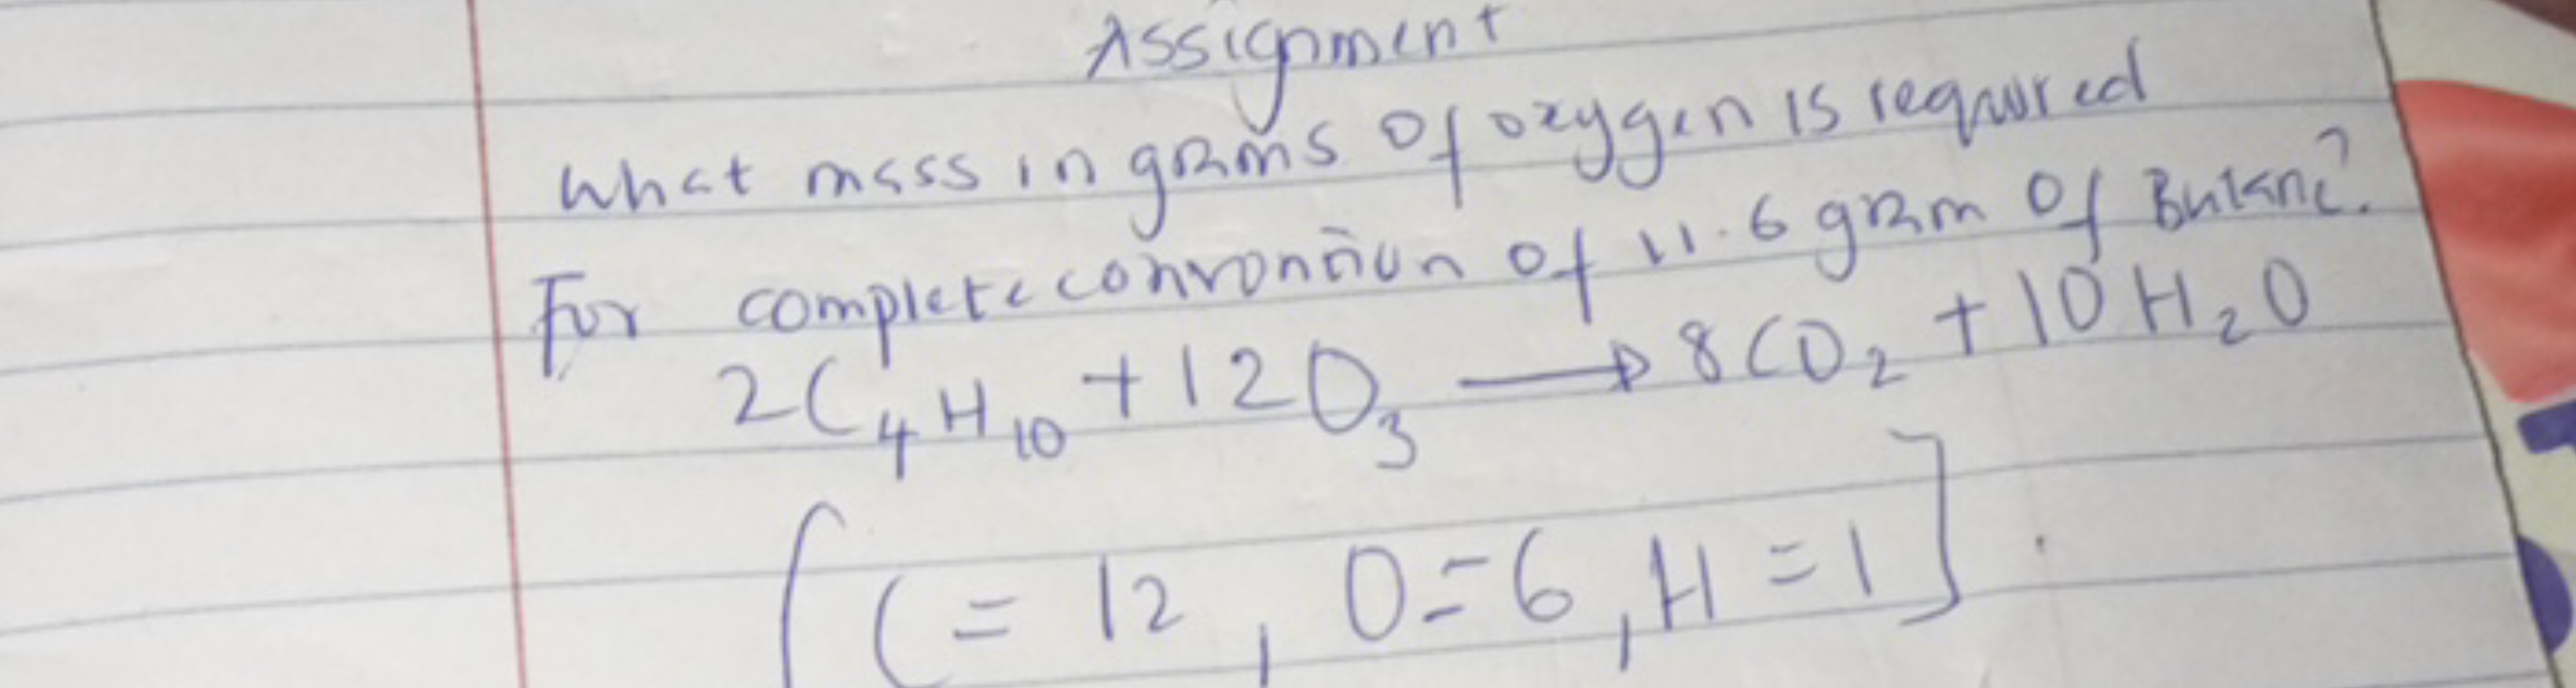 Assignment
What mass in grams of oxygen is required
For complete convontion of 11.6 gram of Butane?
2C₄H₁₀ + 12O₃ → 8CO₂ + 10H₂O
[C = 12, O = 6, H = 1]